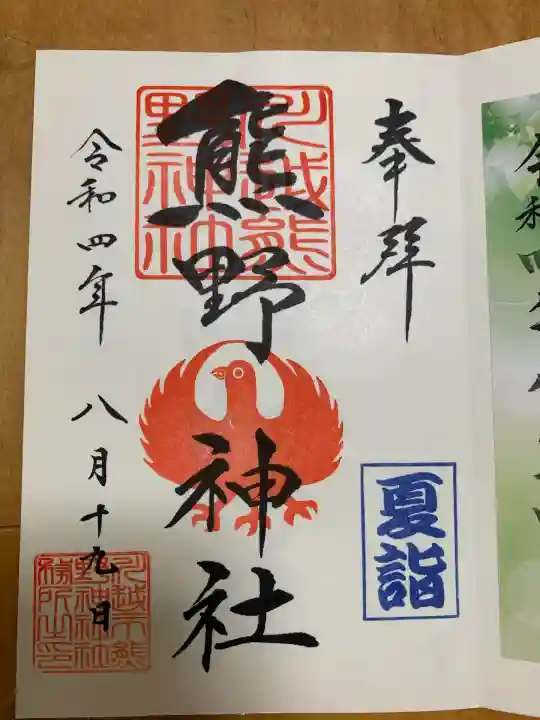 奉拝
夏詣
熊野神社
川越熊
野神社
令和四年 八月十九日
川越市熊
野神社社
務所之印
令和四年